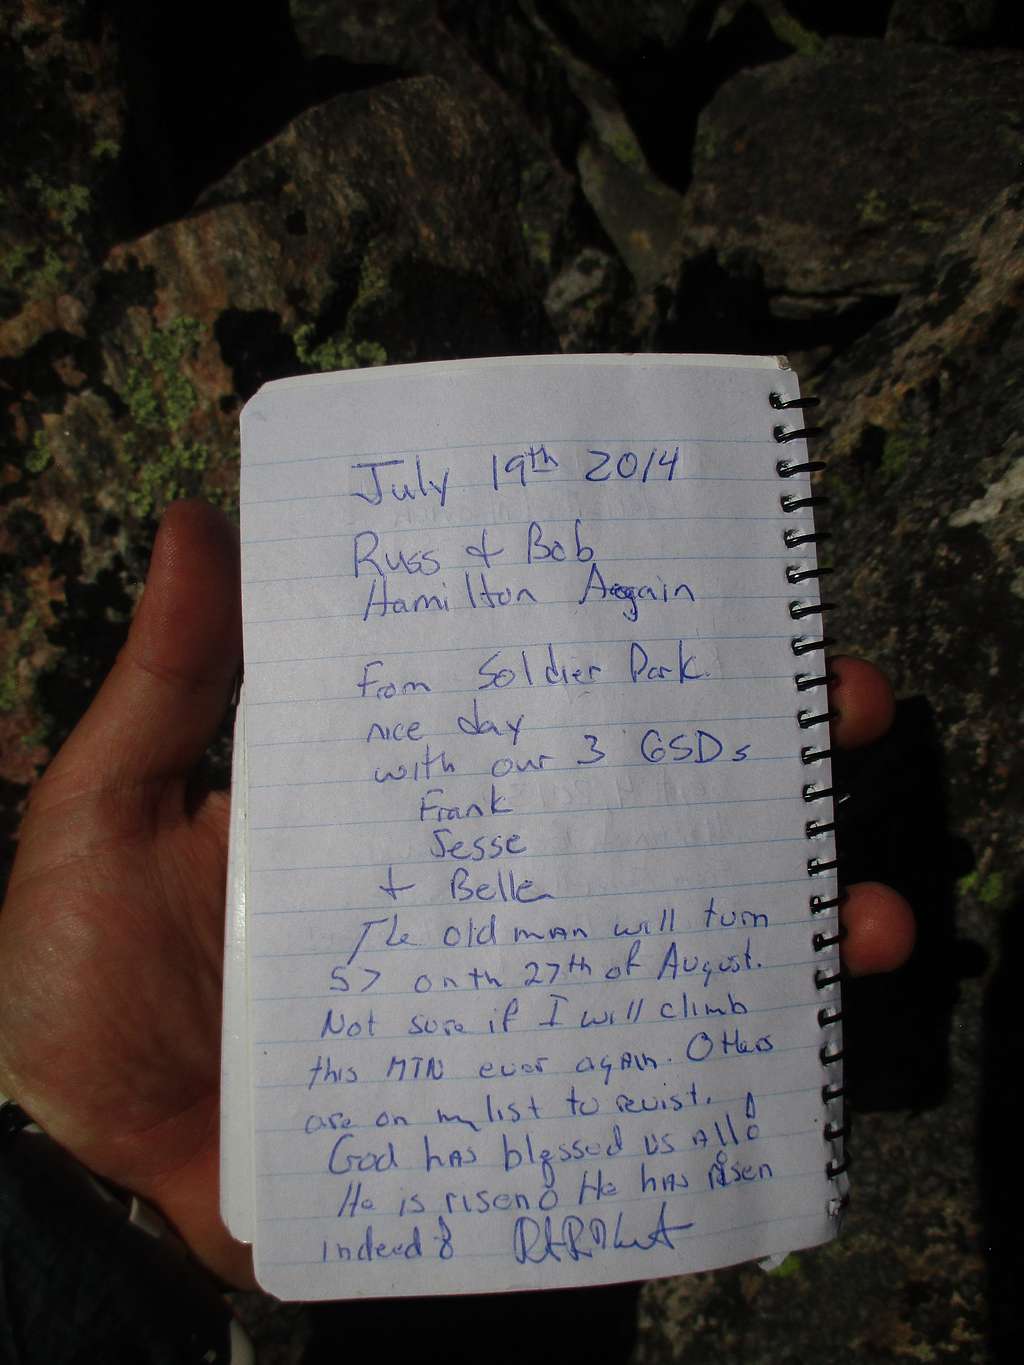 July 19th 2014
Russ & Bob
Hamilton Again
From Soldier Park.
nice day
with our 3 GSDs
Frank
Jesse
& Belle
The old man will turn
57 on th 27th of August.
Not sure if I will climb
this MTN ever again. Others
are on my list to revist.
God has blessed us All!
He is risen! He has risen
indeed!